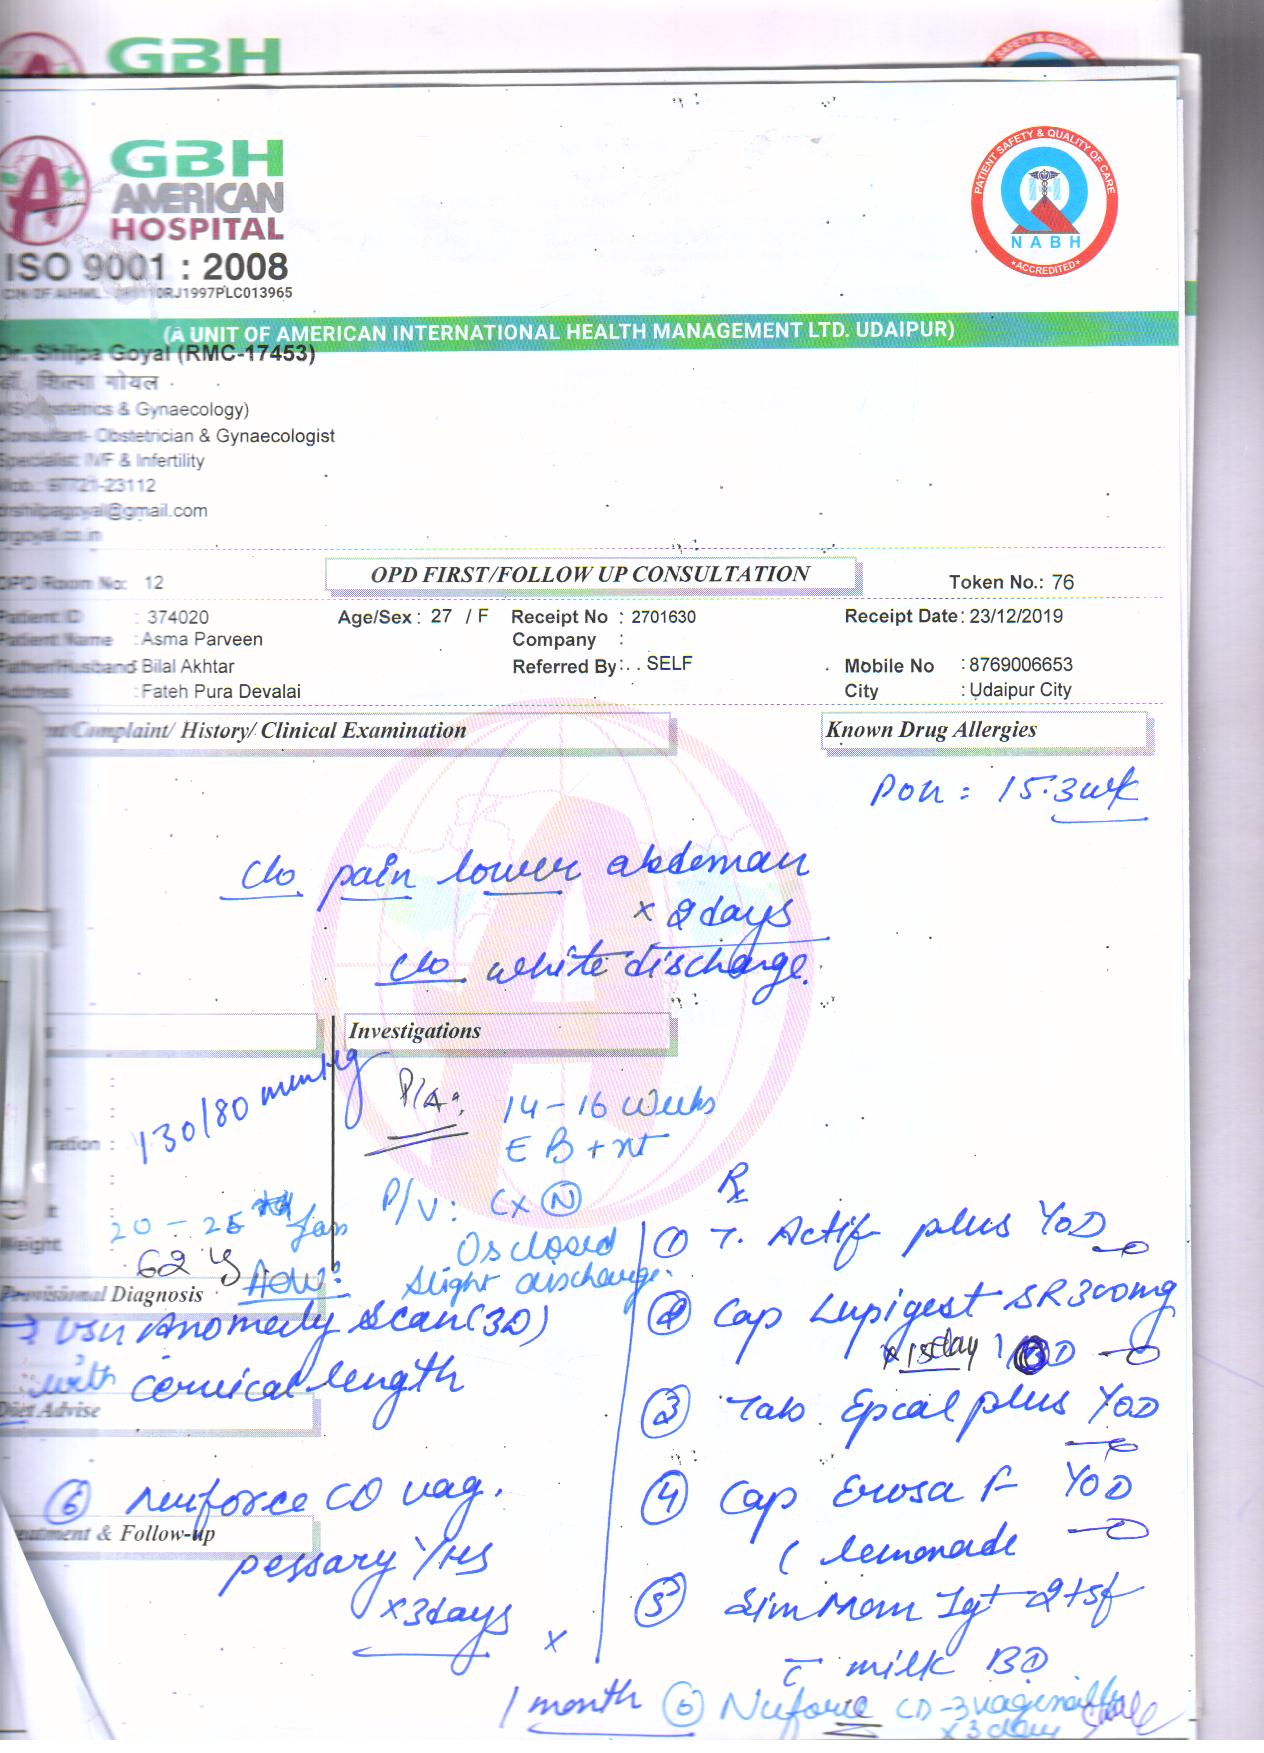 GBH
GBH
AMERICAN
HOSPITAL
ISO 9001 : 2008
0RJ1997PLC013965
PATIENT SAFETY & QUALITY OF CARE
NABH
ACCREDITED
(A UNIT OF AMERICAN INTERNATIONAL HEALTH MANAGEMENT LTD. UDAIPUR)
Dr. Shilpa Goyal (RMC-17453)
डॉ. शिल्पा गोयल
MS(Obstetrics & Gynaecology)
Consultant- Obstetrician & Gynaecologist
Specialist IVF & Infertility
Mob.: 97721-23112
drshilpagoyal@gmail.com
drgoyal.co.in
OPD Room No: 12
OPD FIRST/FOLLOW UP CONSULTATION
Token No.: 76
Patient ID : 374020 Age/Sex : 27 / F Receipt No : 2701630 Receipt Date: 23/12/2019
Patient Name : Asma Parveen Company :
Father/Husband : Bilal Akhtar Referred By : . . SELF Mobile No : 8769006653
Address : Fateh Pura Devalai City : Udaipur City
Complaint/ History/ Clinical Examination
Known Drug Allergies
POG = 15.3wk
c/o pain lower abdoman
x 2 days
c/o white discharge.
Investigations
130/80 mmHg
P/A: 14-16 weeks
E B + nt
P/V: CX N
Os closed
slight discharge.
20-25 Jan
Weight 62
Adv:
Provisional Diagnosis
→ USG Anomely Scan(3D)
with cervical length
Diet Advise
⑥ Nuforce CD vag.
Treatment & Follow-up
pessary 1/HS
x 3 days
Rx
① T. Actif plus 1/OD
② Cap Lupigest SR300mg
x 15day 1 OD
③ Tab Epcal plus 1/OD
④ Cap Erosa F 1/OD
( lemonade
⑤ SimMom 1gt 2tsf
c̄ milk BD
x 1 month
⑥ Nuforce CD-3 vaginally
x 3 day